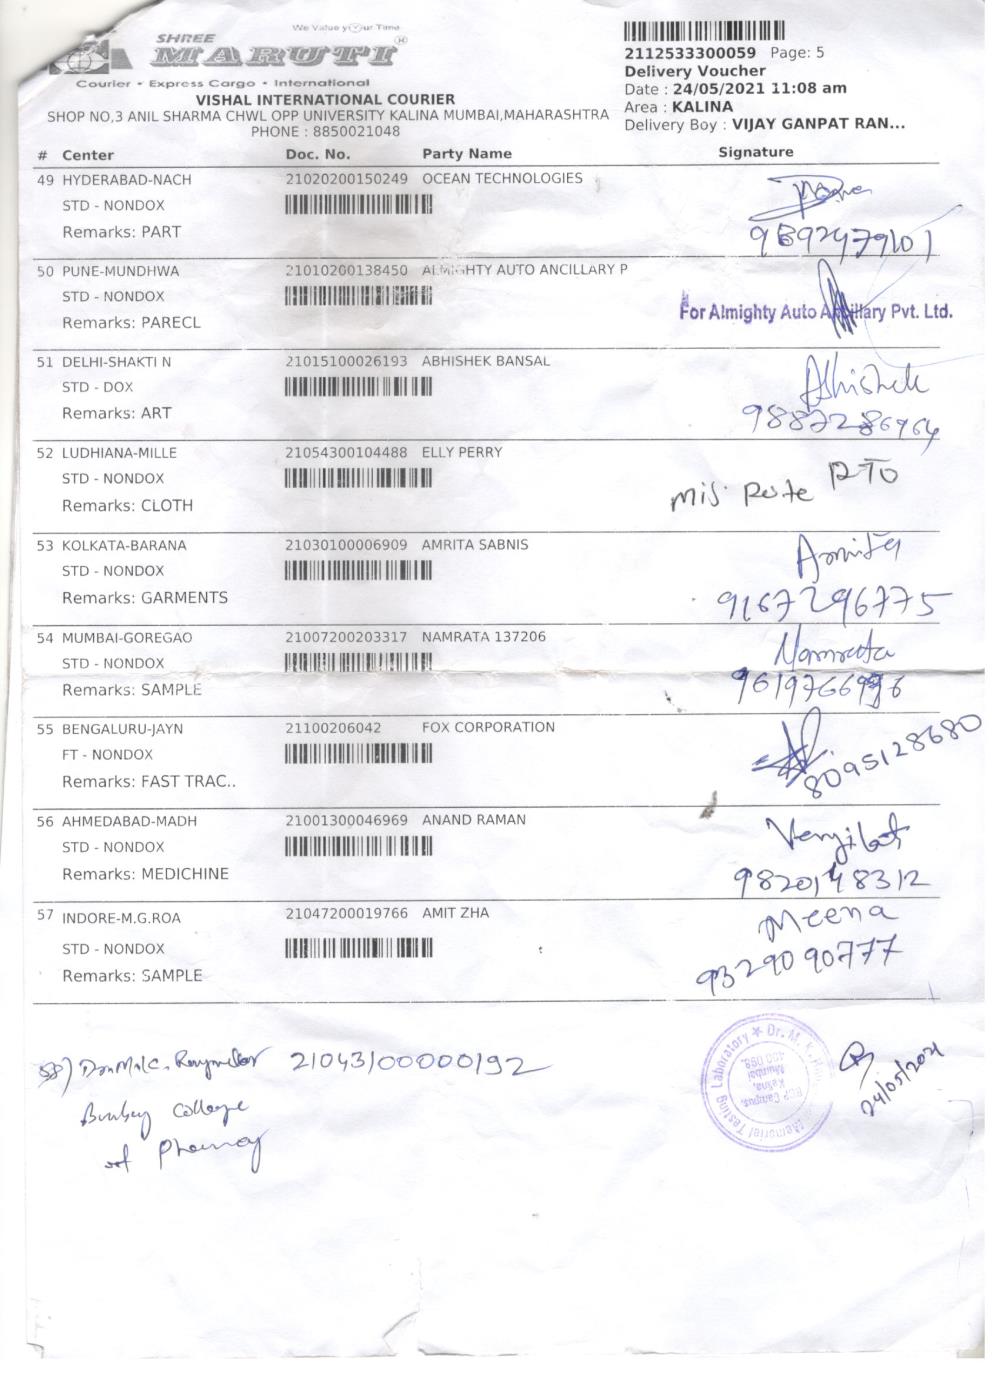 We Value your Time
SHREE
MARUTI
Courier • Express Cargo • International
VISHAL INTERNATIONAL COURIER
SHOP NO,3 ANIL SHARMA CHWL OPP UNIVERSITY KALINA MUMBAI,MAHARASHTRA
PHONE : 8850021048
2112533300059 Page: 5
Delivery Voucher
Date : 24/05/2021 11:08 am
Area : KALINA
Delivery Boy : VIJAY GANPAT RAN...
# Center Doc. No. Party Name Signature
49 HYDERABAD-NACH 21020200150249 OCEAN TECHNOLOGIES
STD - NONDOX
Remarks: PART
50 PUNE-MUNDHWA 21010200138450 ALMIGHTY AUTO ANCILLARY P
STD - NONDOX
For Almighty Auto Ancillary Pvt. Ltd.
Remarks: PARECL
51 DELHI-SHAKTI N 21015100026193 ABHISHEK BANSAL
STD - DOX Abhishek
Remarks: ART
52 LUDHIANA-MILLE 21054300104488 ELLY PERRY
STD - NONDOX mis Route RTO
Remarks: CLOTH
53 KOLKATA-BARANA 21030100006909 AMRITA SABNIS
STD - NONDOX Amrita
Remarks: GARMENTS 9167296775
54 MUMBAI-GOREGAO 21007200203317 NAMRATA 137206
STD - NONDOX Namrata
Remarks: SAMPLE
55 BENGALURU-JAYN 21100206042 FOX CORPORATION
FT - NONDOX 8095128680
Remarks: FAST TRAC..
56 AHMEDABAD-MADH 21001300046969 ANAND RAMAN
STD - NONDOX
Remarks: MEDICHINE 9820148312
57 INDORE-M.G.ROA 21047200019766 AMIT ZHA
Meena
STD - NONDOX 9329090777
Remarks: SAMPLE
58) 21043100000192
Bombay College
of Pharmacy
Memorial Testing Laboratory ★ Dr. M. K.
BCP Campus,
Kalina,
Mumbai
400 098.
24/05/2021